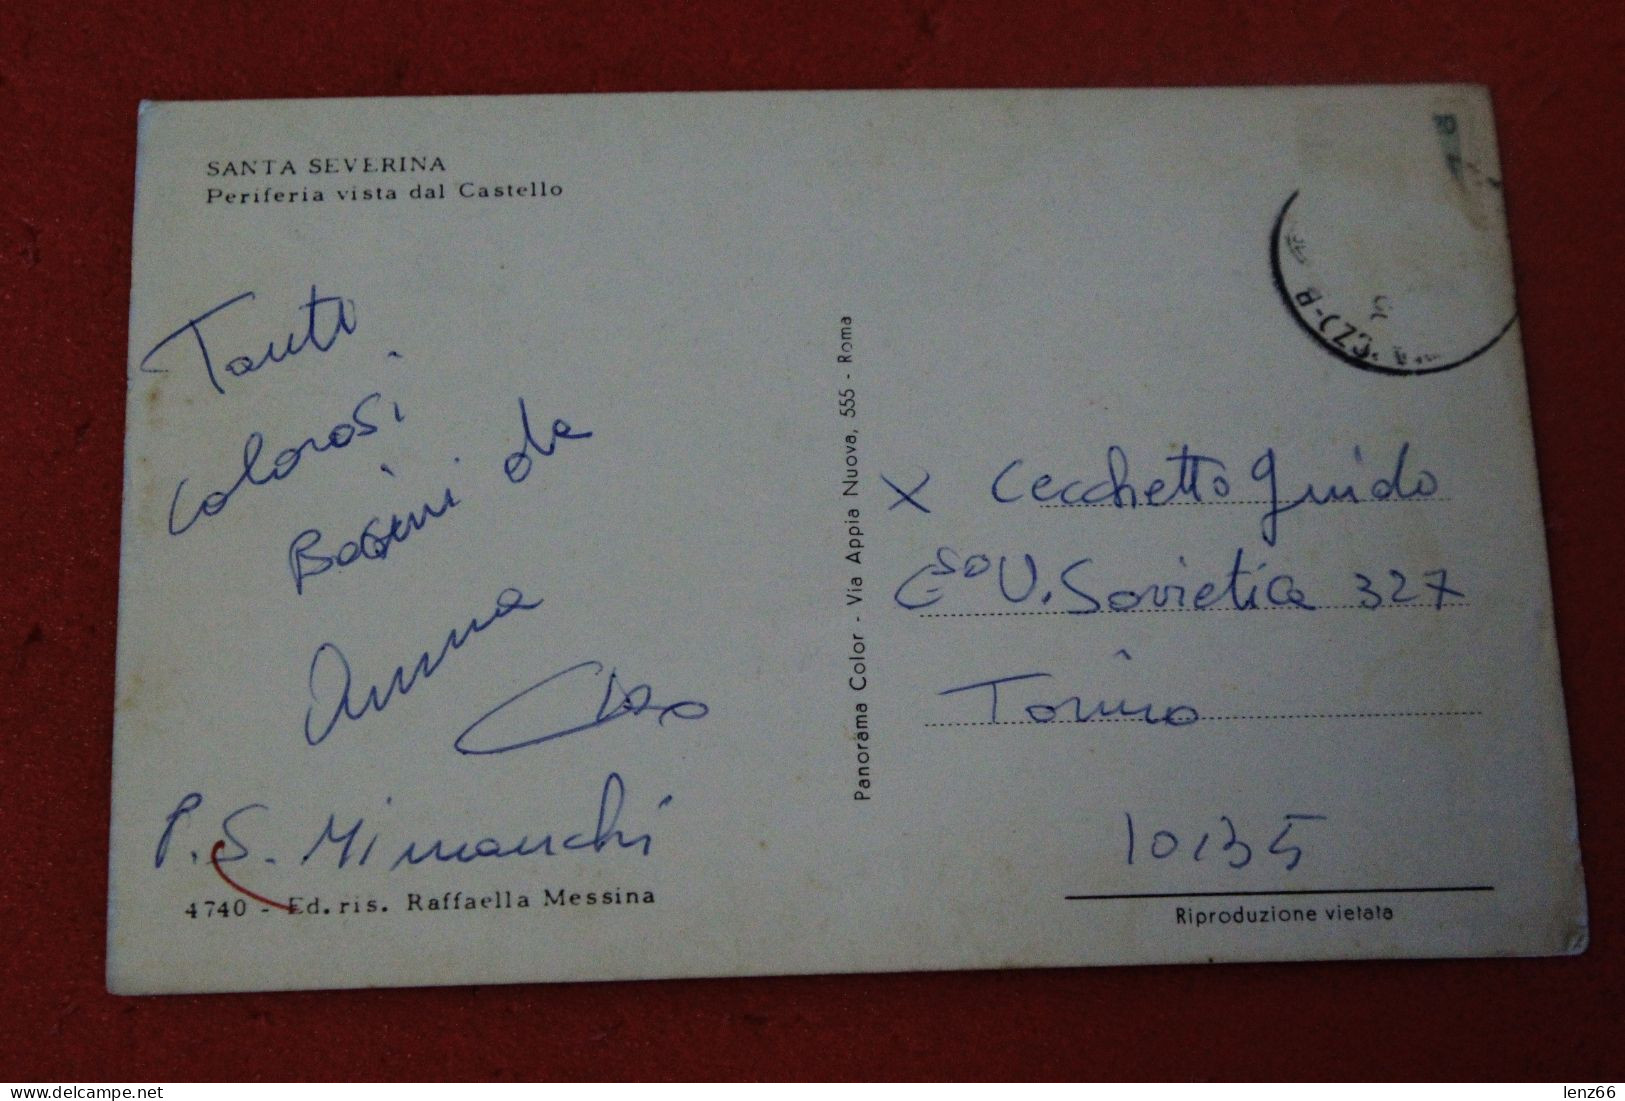 SANTA SEVERINA
Periferia vista dal Castello
Tanti
calorosi
Bacini da
Anna
Ciao
P.S. Mi manchi
4740 - Ed. ris. Raffaella Messina
Panorama Color - Via Appia Nuova, 555 - Roma
(CZ)-B
X Cecchetto Guido
Cso U. Sovietica 327
Torino
10135
Riproduzione vietata
lenz66